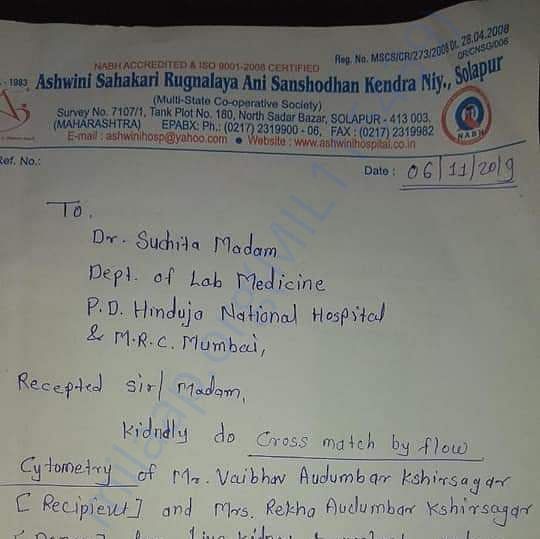 Reg. No. MSCS/CR/273/2008 Dt. 28.04.2008
NABH ACCREDITED & ISO 9001-2008 CERTIFIED
OR/CNSG/006
- 1983
Ashwini Sahakari Rugnalaya Ani Sanshodhan Kendra Niy., Solapur
(Multi-State Co-operative Society)
Survey No. 7107/1, Tank Plot No. 180, North Sadar Bazar, SOLAPUR - 413 003.
(MAHARASHTRA) EPABX: Ph.: (0217) 2319900 - 06, FAX : (0217) 2319982
E-mail : ashwinihosp@yahoo.com ● Website : www.ashwinihospital.co.in
NABH
Ref. No.:
Date : 06/11/2019
To,
Dr. Suchita Madam
Dept. of Lab Medicine
P.D. Hinduja National Hospital
& M.R.C. Mumbai,
Recepted sir/ Madam,
Kidndly do Cross match by flow
Cytometry of Mr. Vaibhav Audumbar Kshirsagar
[ Recipient] and Mrs. Rekha Audumbar Kshirsagar
milaap.org